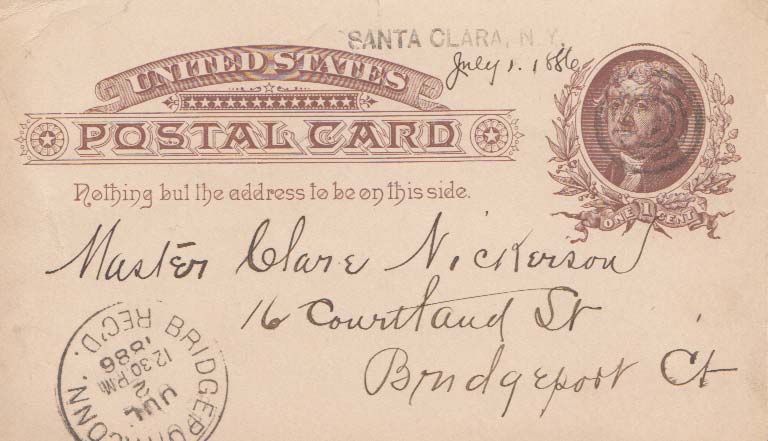 SANTA CLARA, N.Y.
July 1. 1886
UNITED STATES
POSTAL CARD
Nothing but the address to be on this side.
ONE 1 CENT
Master Clare Nickerson
16 Courtland St
Bridgeport Ct
BRIDGEPORT, CONN.
JUL
2
12 30 PM
1886
REC'D.